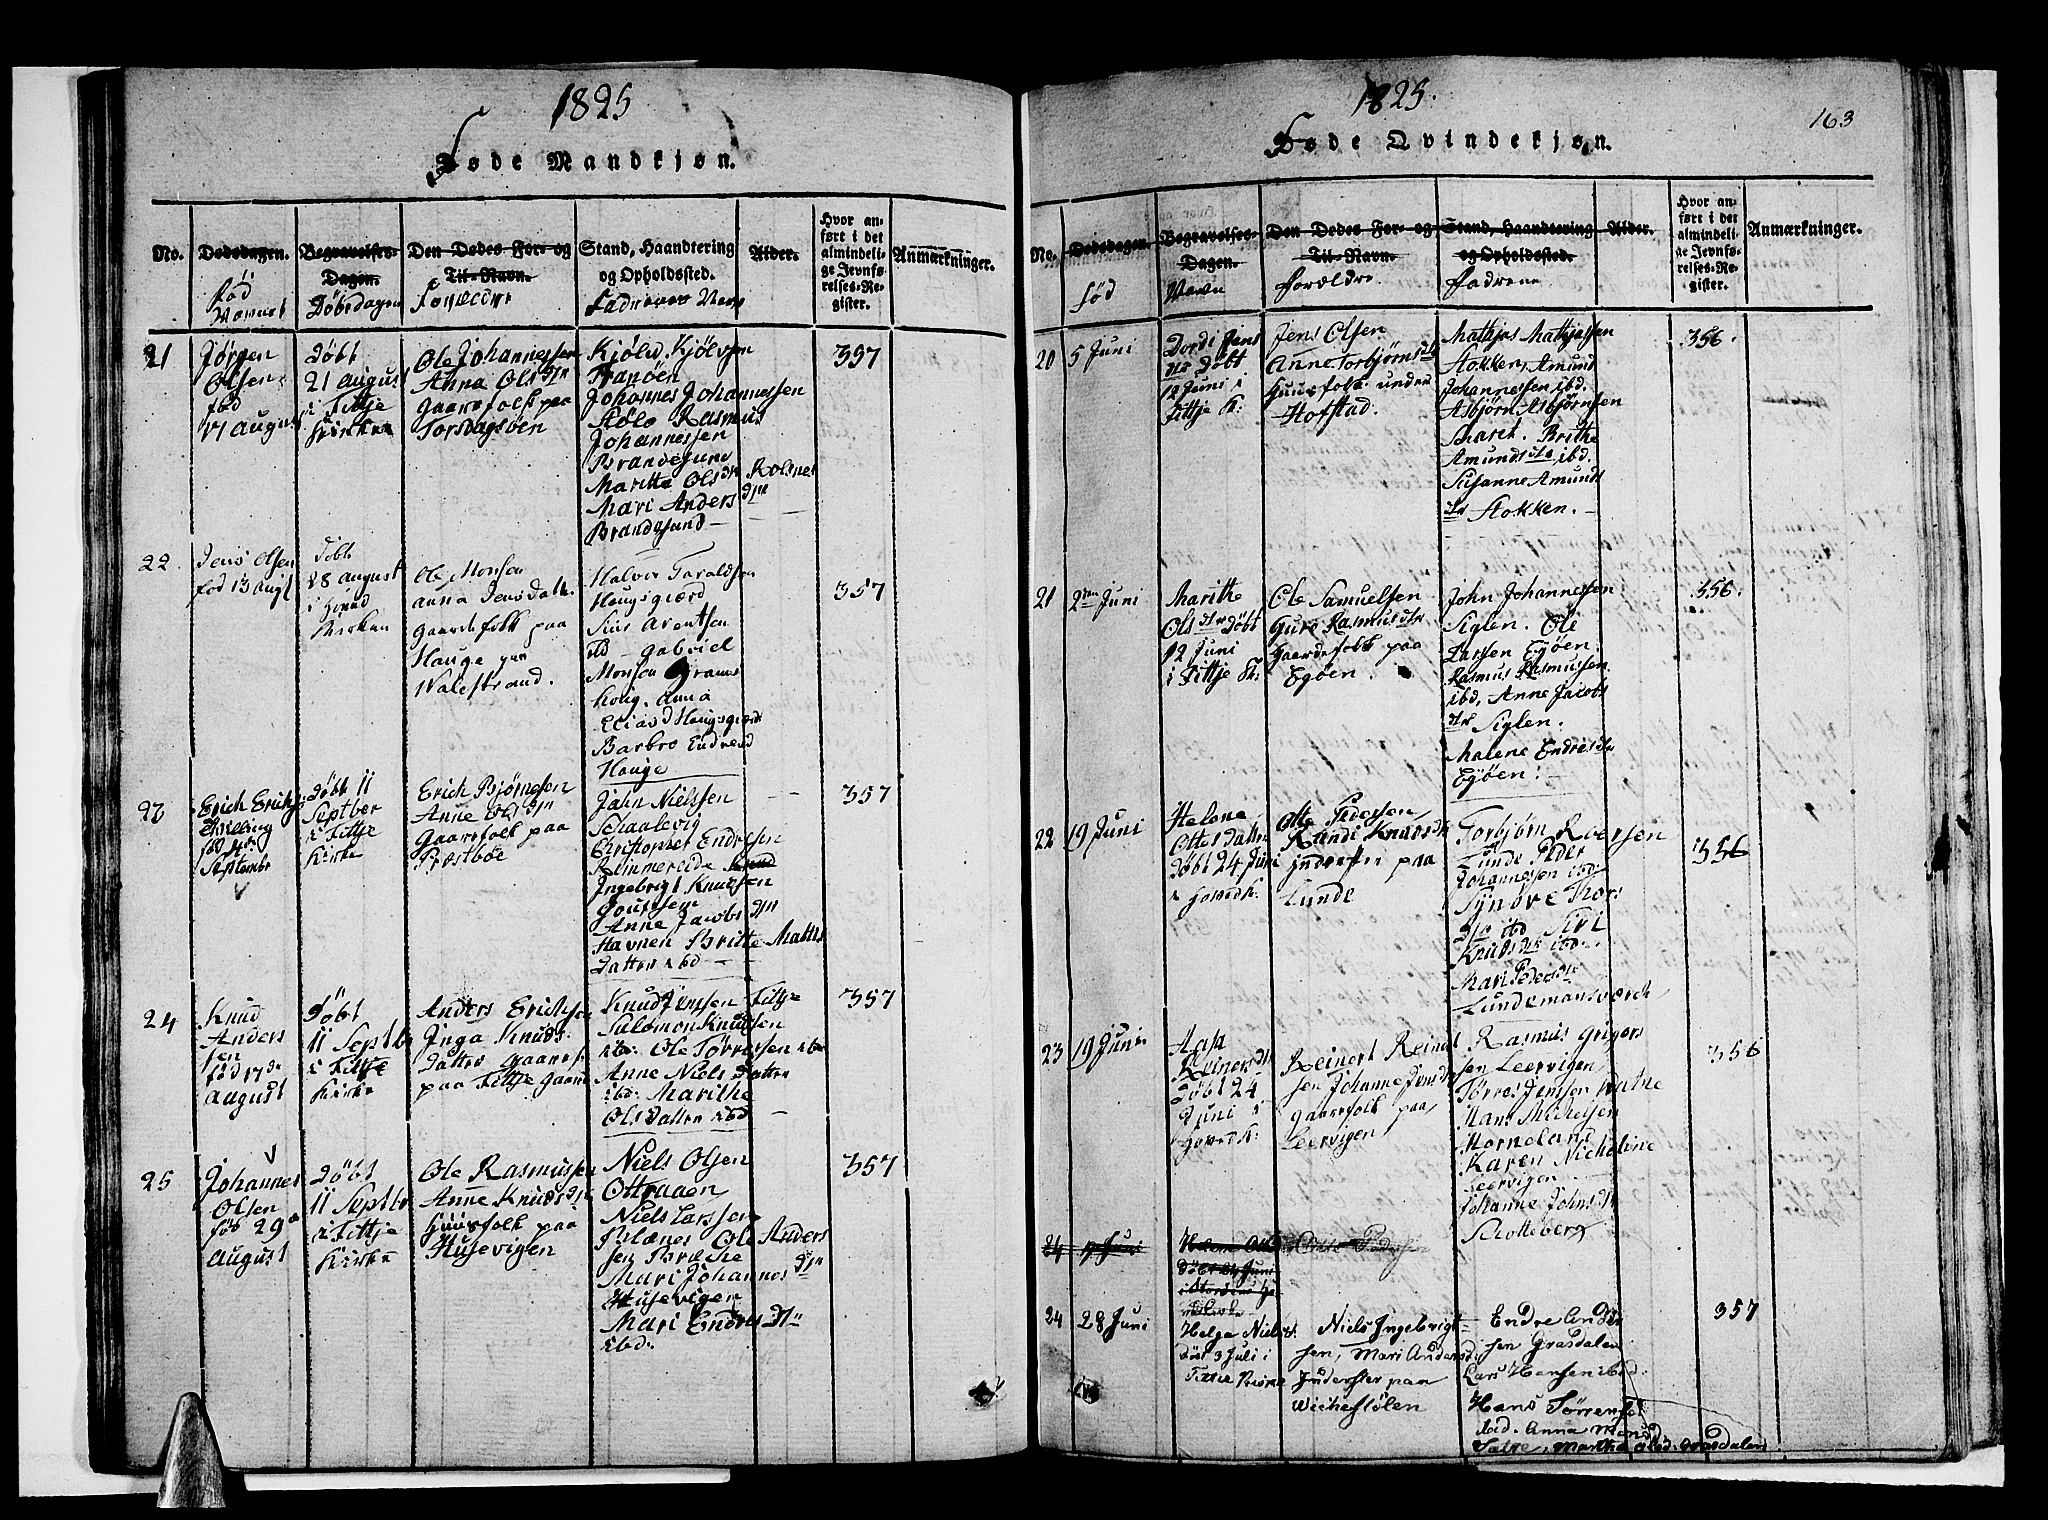 1825
Føde Mandkjøn.
No.
Dødsdagen.
Begravelses-
Dagen.
Den Dødes For- og
Til-Navn.
Stand, Haandtering
og Opholdssted.
Alder.
Hvor an-
ført i det
almindeli-
ge Jevnfø-
relses-Re-
gister.
Anmærkninger.
fød
Døbedagen
21
Jørgen
Olsen
fød
17 August
Døbt
21 August
i Fittje
Kirke
Ole Johannessen
Anna Olsdtr
Gaardfolk paa
Torsdagsøen
Kjøld Kjølvsen
Tranøen
Johannes Johannessen
Stølo Rasmus
Johannessen
Brandesund
Maritta Olsdtr Rolsnes
Mari Anders dtr
Brandesund
357
22
Jens Olsen
fød 13 Augs
Døbt
28 August
i Hovid
Kirken
Ole Monsen
Anna Jensdatt.
Gaardefolk paa
Hauge
Walestrand.
Halvor Taraldsen
Haugsgiærd
Siur Arentsen
ibd - Gabriel
Monsen Grams
holig. Anna
Eliasd Haugsgiærd
Barbro Endresd
Hauge
357
23
Erich Erichs:
Skilling
fød 4de
September
Døbt 11
Septber
i Fittje
Kirke
Erich Bjørnesen
Anne Olsdtr
Gaardfolk paa
Præstbøe
Jahn Nielssen
Schaalevig
Christopher Endresen
Rimmereide
Ingebrigt Knudsen
Anne Jacobs dtr
Havnen Britte Mattis
Datter ibd
357
24
Knud
Anders
sen
fød 17de
August
Døbt
11 Septbr
i Fittje
Kirke
Anders Erichsen
Inga Knuds
Datter Gaardf
paa Fittje Gaard
Knud Jenssen Fittje
Salomon Knudsen
ibd: Ole Tørressen ibd
Anne Niels Datter
ibd: Marithe
Ols Datter ibd
357
25
Johannes
Olsen
fød 29de
August
Døbt
11 Septbr
i Fittje
Kirke
Ole Rasmussen
Anne Knudsdtr
Huusfolk paa
Husevigen
Niels Olsen
Niels Larssen
Ole Anders
sen
Mari Johannes dtr
Husevigen
Mari Endres dtr
ibd:
357
1825.
163
Føde Qvindekjøn.
No.
Dødsdagen.
Begravelses-
Dagen.
Den Dødes For- og
Til-Navn.
Stand, Haandtering
og Opholdssted.
Alder.
Hvor an-
ført i det
almindeli-
ge Jevnfø-
relses-Re-
gister.
Anmærkninger.
fød
Navn
Forældre
Fadrene
20
5 Juni
Dordi Jens
dtr Døbt
12 Juni i
Fittje K:
Jens Olsen
Anne Torbjørnsdtr
Huusfolk under
Hofstad.
Mathjas Mathjassen
Stokken, Amund
Johannessen ibd.
Asbjørn Asbjørnsen
Smaret. Brithe
Amundsdtr ibd.
Susanne Amunds
dtr Stokken.
356
21
2den Juni
Marithe
Olsdtr Døbt
12 Juni
i Fittje K:
Ole Samuelsen
Gure Rasmusdtr
Gaardefolk paa
Egøen.
John Johannessen
Siglen. Ole
Larssen Egøen.
Rasmus Rasmussen
ibd, Anne Jacobs
dtr Siglen.
Malene Endresdtr
Egøen:
356
22
19 Juni
Helene
Ottes Datter
Døbt 24 Juni
i Hovedk:
Otte Pedersen
Randi Knudsdtr
Inderster paa
Lunde
Torbjørn Roersen
Lunde Peder
Johannessen ibd
Synøve Thors
dtr ibd Siri
Knudsdtr ibd:
Mari Pedersdtr
Lundemansværch
356
23
19 Juni
Aasa
Reinersdtr
Døbt 24
Juni i
Hovedk:
Reinert Reinert
sen Johanne Jensdtr
Gaardfolk paa
Leervigen
Rasmus Grigers
sen Leervigen
Tørres Jensson Vatne
Hans Michelsen
Horneland
Karen Nicholine
Leervigen
Johanne Johnsdtr
Schotteberg
356
24 19 Juni
Helene Ottes
Døbt 24 Juni
Otte Pedersen
24
28 Juni
Helga Nielsd.
Døbt 3 Juli i
Fittje Kirke
Niels Ingebrigt
sen, Mari Andersd:
Inderster paa
Wichestølen
Endre Ander
sen Grasdalen
Lars Hansen ibid:
Hans Tørresen
ibid. Anna Monsd
Sætre, Martha Olsd. Grasdalen
357